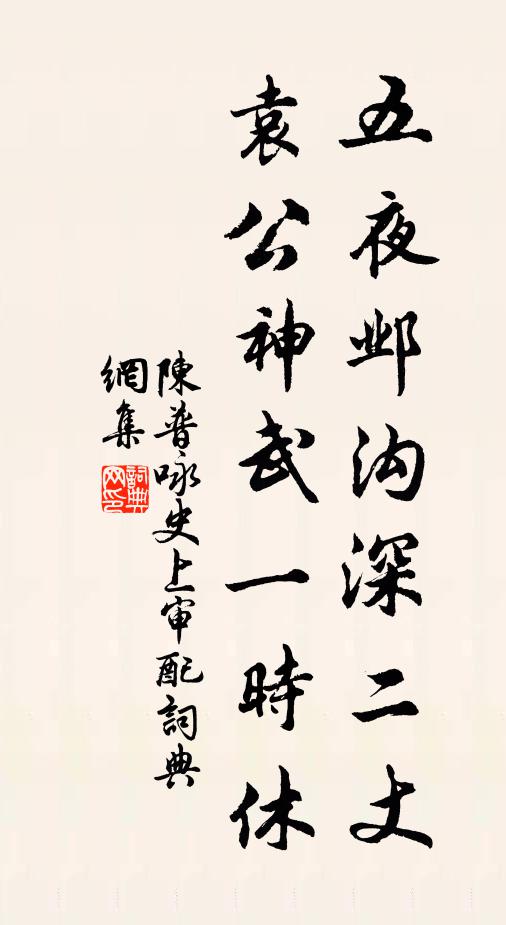 五夜邺沟深二丈
袁公神武一時休
陳普咏史上审配詞典
網集
詞典
网印